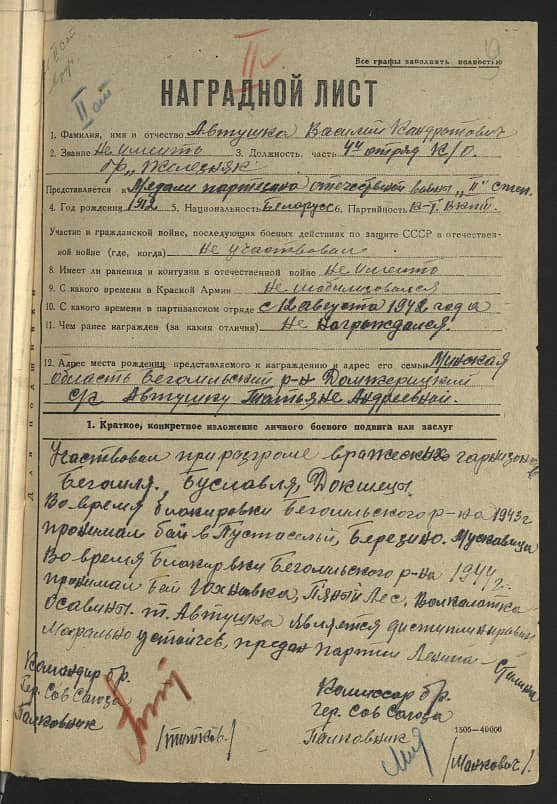 II
II ст
Все графы заполнять полностью
НАГРАДНОЙ ЛИСТ
1. Фамилия, имя и отчество Автушка Василий Кандратович
2. Звание Не имеито 3. Должность, часть 4й отряд К/О.
бр. „Железняк“
Представляется к Медали партизано отечественной войны „II“ степ.
4. Год рождения 1912 5. Национальность Белорусс 6. Партийность К-т. ВКПб.
Участие в гражданской войне, последующих боевых действиях по защите СССР в отечествен-
ной войне (где, когда) Не участвовал
8. Имеет ли ранения и контузии в отечественной войне Не имеито
9. С какого времени в Красной Армии Не мобилизовался
10. С какого времени в партизанском отряде с 12 августа 1942 года
11. Чем ранее награжден (за какия отличия) Не награждался.
12. Адрес места рождения, представляемого к награждению и адрес его семьи Минская
область Бегомльский р-н Домжерицкий
с/с Автушку Татьяне Андреевной.
1. Краткое, конкретное изложение личного боевого подвига или заслуг
Участвовал при разгроме вражеских гарнизонов
Бегомля, Буславля, Докшецы.
Во время блакировки Бегомльского р-на 1943г
пронимал бай в Пустаселы, Березино. Мускавица
Во время Блакировки Бегомльского р-на 1944г.
пронимал бай Юхновка, Пяный Лес, Волколатка
Осавины. т. Автушка является дисциплинирован
Марально устойчев, предан партии Ленина - Сталина
Командир бр.
Гер. Сов Союза
Палковник
/Титков./
Комиссар бр.
гер. Сов Союза
Палковник
/Манкович/.
1500—40000
Для подшивки